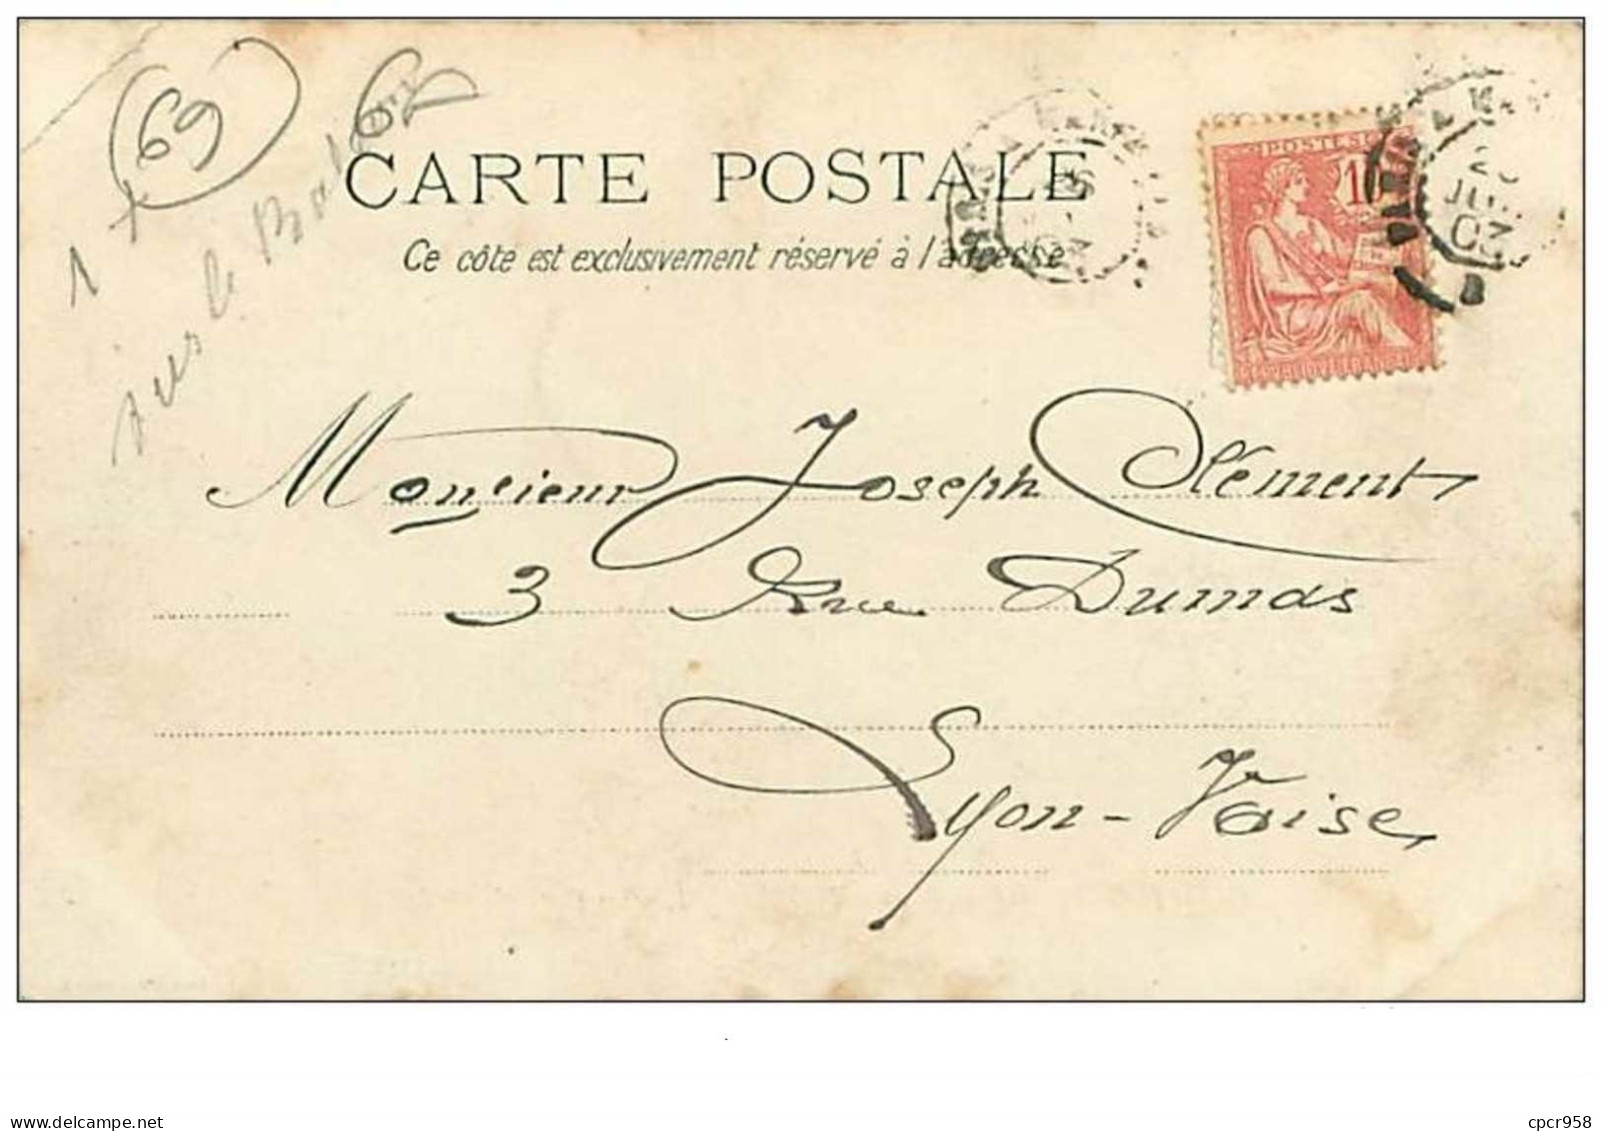 (69)
1
sur le
CARTE POSTALE
Ce côte est exclusivement réservé à l'adresse
POSTES
20
JUI
03
Monsieur Joseph Clément
3 Rue Dumas
Lyon-Vaise
www.delcampe.net
cpcr958